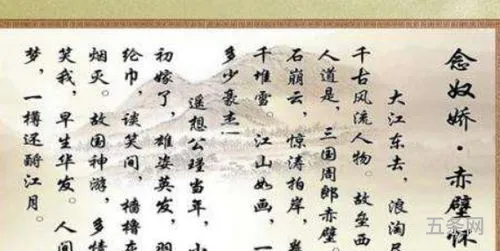 念奴娇·赤壁怀
大江东去，浪淘
千古风流人物。故垒西
人道是，三国周郎赤壁
石崩云，惊涛拍岸，卷
千堆雪。江山如画，一
多少豪杰！
遥想公瑾当年，小
初嫁了，雄姿英发，羽
纶巾，谈笑间，樯橹
烟灭。故国神游，多情
笑我，早生华发。人间
梦，一樽还酹江月。
五条网